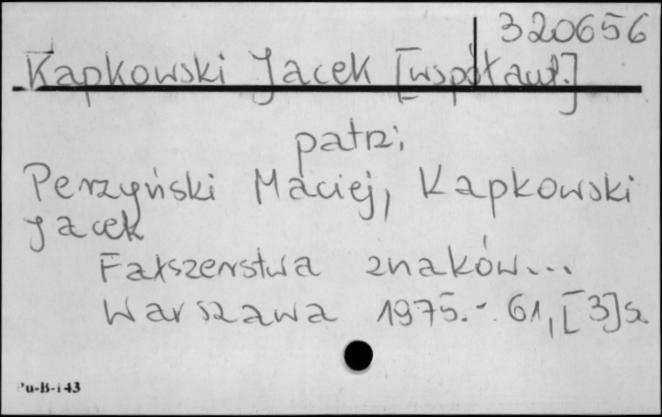 320656
Kapkowski Jacek [współaut.]
patrz:
Perzyński Maciej, Kapkowski
Jacek
Fałszerstwa znaków...
Warszawa 1975.- 61, [3] s.
Pu-B-143